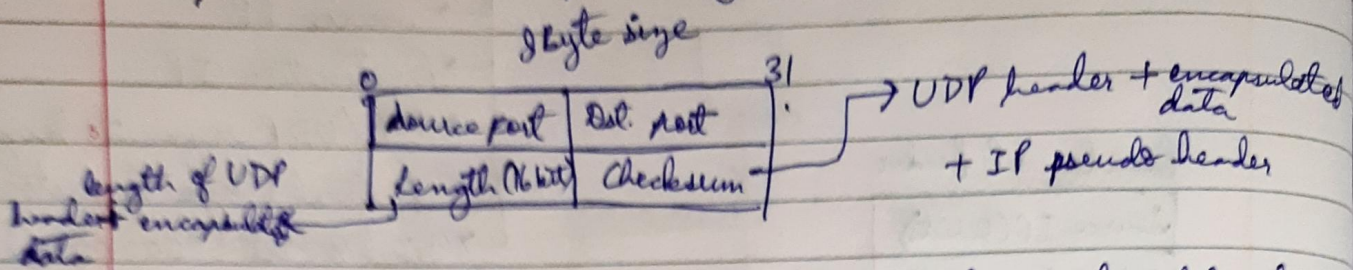 8 Byte size
0 31
source port Dst. port
Length (16 bit) Checksum
UDP header + encapsulated
data
+ IP pseudo header
length of UDP
header + encapsulated
data